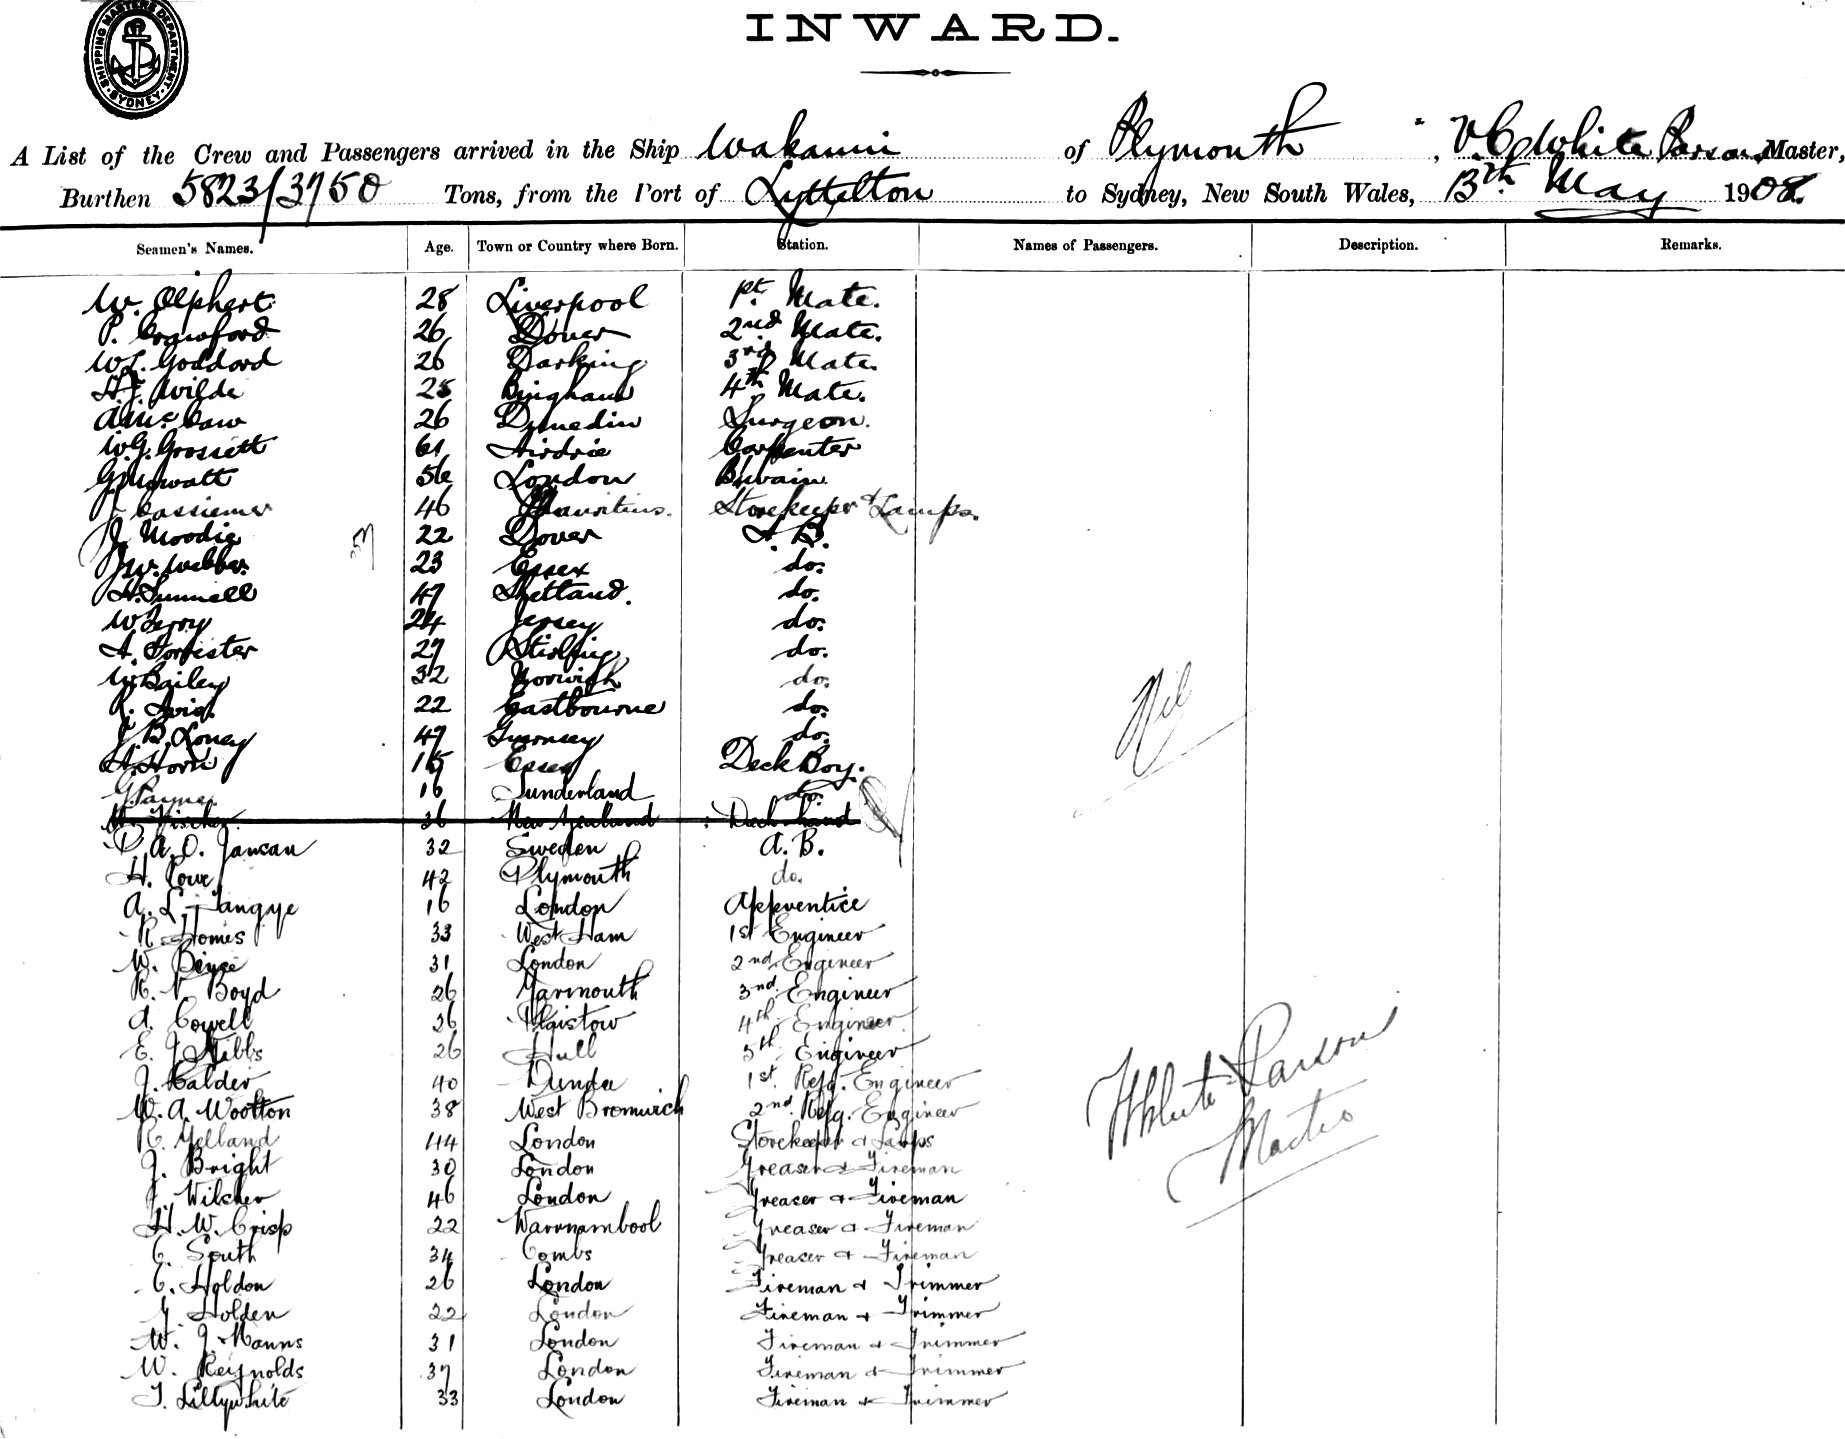 SHIPPING MASTERS DEPARTMENT SYDNEY
INWARD.
A List of the Crew and Passengers arrived in the Ship Wakanui of Plymouth, White Parson, Master,
Burthen 5823/3750 Tons, from the Port of Lyttelton to Sydney, New South Wales, 13th May 1908.
Seamen's Names. Age. Town or Country where Born. Station. Names of Passengers. Description. Remarks.
W. Olphert 28 Liverpool 1st Mate.
P. Crawford 26 Dover 2nd Mate.
W.L. Goddard 26 Darking 3rd Mate.
H.J. Wilde 25 Bingham 4th Mate.
A. McCaw 26 Dunedin Surgeon.
W.G. Grossett 61 Airdrie Carpenter
G. Mowatt 56 London B'swain
J. Cassiemer 46 Mauritius. Storekeeper & Lamps.
J. Moodie 22 Dover A.B.
J.W. Webber 23 Essex do.
H. Sunnell 47 Shetland. do.
W. Leroy 24 Jersey do.
A. Forrester 27 Stirling do.
W. Bailey 32 Norwich do.
22 Eastbourne do.
J.B. Loney 47 Guernsey do.
A. Horn 15 Essex Deck Boy.
G. Payne 16 Sunderland do.
W. Fischer 36 New Zealand Deck hand
D. A. O. Jansan 32 Sweden A.B.
H. Cowe 42 Plymouth do.
A. L. Tangye 16 London Apprentice
R. Homes 33 West Ham 1st Engineer
W. 31 London 2nd Engineer
R. V. Boyd 26 Yarmouth 3rd Engineer
A. Cowell 26 Plaistow 4th Engineer
E. J. Stibbs 26 Hull 5th Engineer
J. Calder 40 Dundee 1st. Refg. Engineer
W. A. Wootton 38 West Bromwich 2nd. Refg. Engineer
R. Yelland 44 London Storekeeper & Lamps
J. Bright 30 London Greaser & Fireman
J. Wilsher 46 London Greaser & Fireman
H. W. Crisp 22 Warrnambool Greaser & Fireman
C. South 34 Combs Greaser & Fireman
C. Holdon 26 London Fireman & Trimmer
Y. Holden 22 London Fireman & Trimmer
W. J. Manns 31 London Fireman & Trimmer
W. Reynolds 37 London Fireman & Trimmer
T. Lillywhite 33 London Fireman & Trimmer
Nil
White Parson
Master